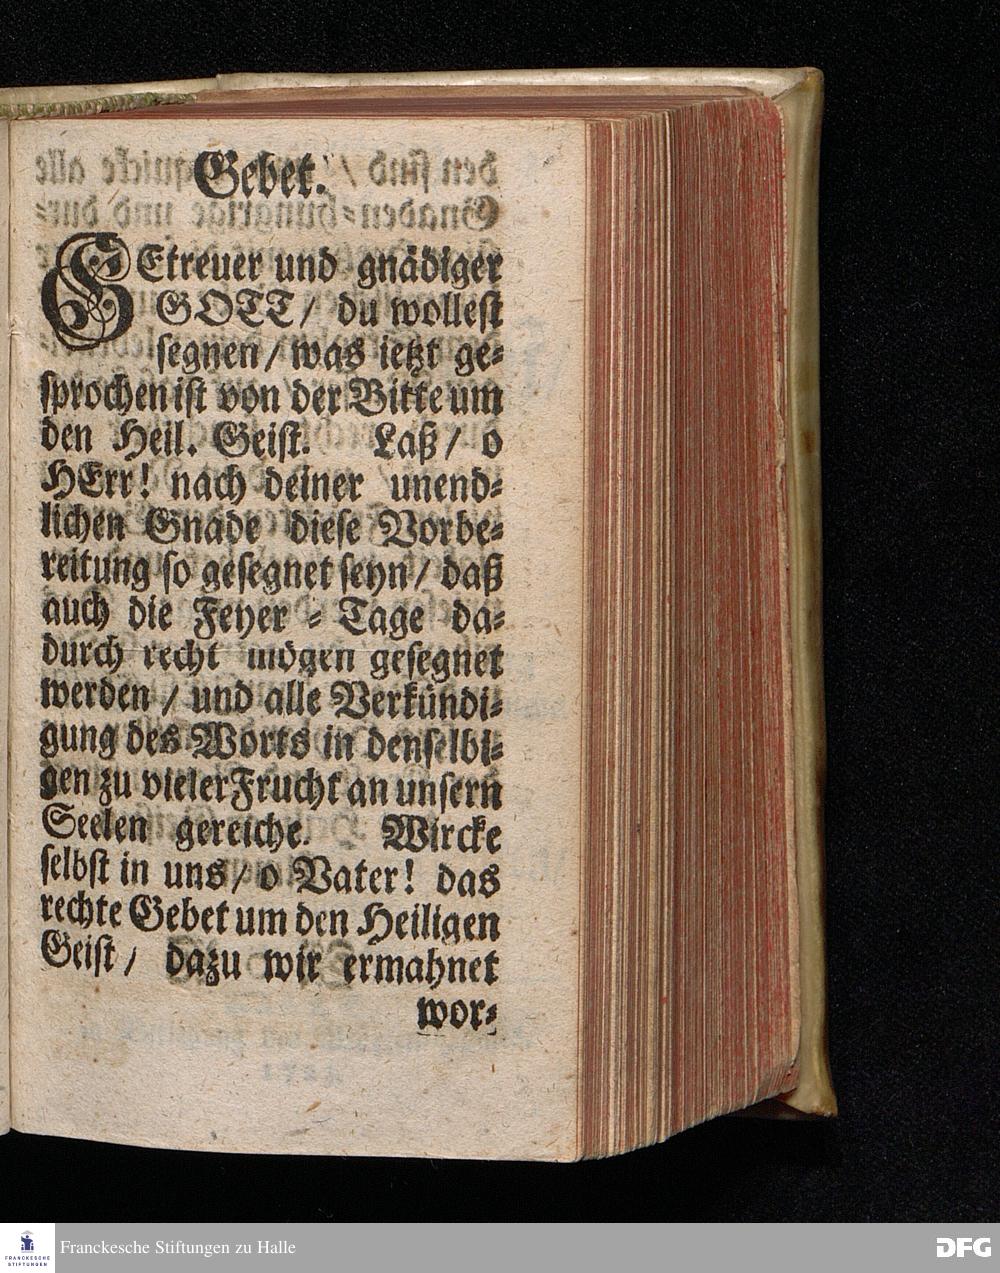 Gebet.
GEtreuer und gnädiger
GOTT / du wollest
segnen / was ietzt ge-
sprochen ist von der Bitte um
den Heil. Geist. Laß / o
HErr! nach deiner unend-
lichen Gnade diese Vorbe-
reitung so gesegnet seyn / daß
auch die Feyer - Tage da-
durch recht mögen gesegnet
werden / und alle Verkündi-
gung des Worts in denselbi-
gen zu vieler Frucht an unsern
Seelen gereiche. Wircke
selbst in uns / o Vater! das
rechte Gebet um den Heiligen
Geist / dazu wir ermahnet
wor-
FRANCKESCHE
STIFTUNGEN
Franckesche Stiftungen zu Halle
DFG